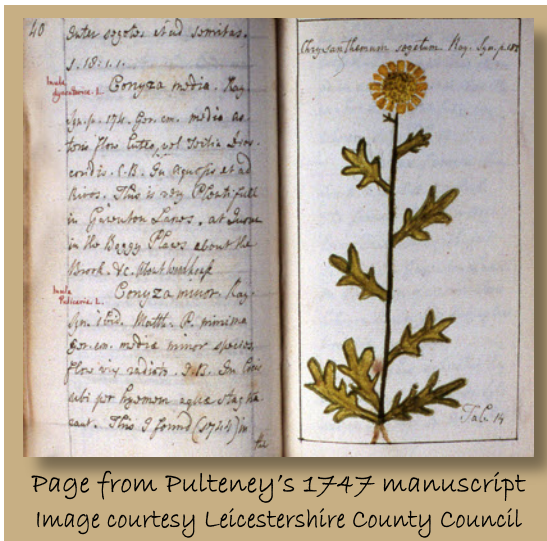 40
Inter segetes et ad semitas.
s. 18. 1. 1.
Inula
dysenterica. L.
Conyza media. Ray.
Syn. p. 174. Ger. em. media as-
teris flore luteo, vel tertia Dios-
coridis. C.B. In aquosis et ad
Rivos. This is very Plentifull
in Lanes, at
in the Boggy Places about the
Brook. &c.
Inula
Pulicaria. L.
Conyza minor. Ray.
Syn. ibid. Matth. P. minima
Ger. em. media minor species
flore vix radiato. J.B. In locis
ubi per hyemem aquæ stagna-
cant. This I found (1744) in
the
Chrysanthemum segetum. Ray. Syn. p.
Tab. 14
Page from Pulteney's 1747 manuscript
Image courtesy Leicestershire County Council